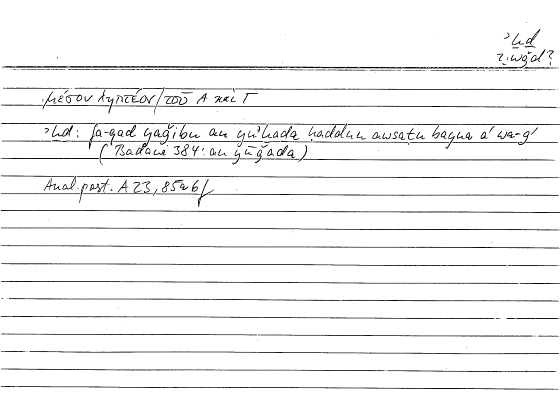 ʾḫḏ
?: wǧd?
μέσον ληπτέον / τοῦ Α καὶ Γ
ʾḫḏ: fa-qad yaǧibu an yuʾḫaḏa ḥaddun awsaṭu bayna aʾ wa-gʾ
(Badawī 384: an yūǧada)
Anal. post. A 23, 85a6f